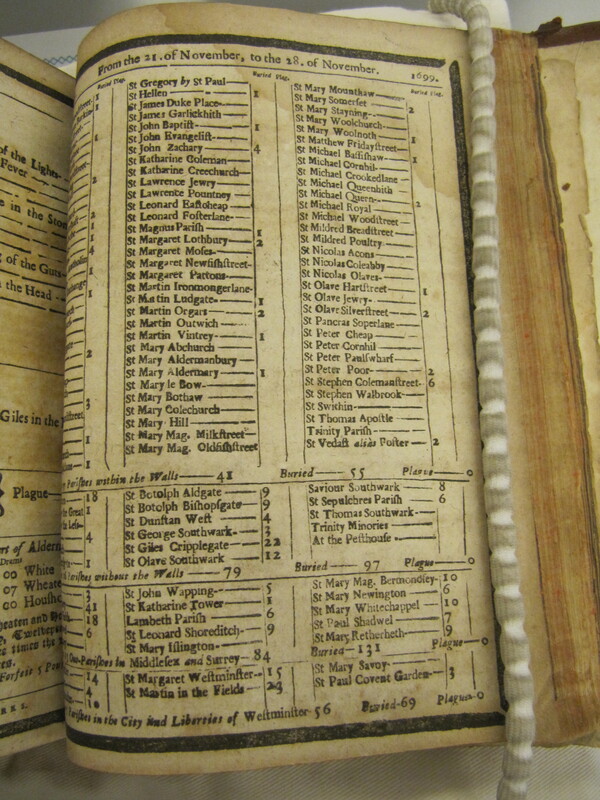 From the 21. of November, to the 28. of November. 1699.
Buried Plag.
Buried Plag.
Buried Plag.
St Gregory by St Paul
St Hellen 1
St James Duke Place
St James Garlickhith
St John Baptist 1
St John Evangelist
St John Zachary 4
St Katharine Coleman
St Katharine Creechurch
St Lawrence Jewry
St Lawrence Pountney
St Leonard Eastcheap
St Leonard Fosterlane
St Magnus Parish 1
St Margaret Lothbury 2
St Margaret Moses
St Margaret Newfishstreet
St Margaret Pattons
St Martin Ironmongerlane
St Martin Ludgate 1
St Martin Orgars 2
St Martin Outwich
St Martin Vintrey 1
St Mary Abchurch
St Mary Aldermanbury
St Mary Aldermary 1
St Mary le Bow
St Mary Bothaw
St Mary Colechurch
St Mary Hill
St Mary Mag. Milkstreet
St Mary Mag. Oldfishstreet
St Mary Mounthaw
St Mary Somerset 2
St Mary Stayning
St Mary Woolchurch
St Mary Woolnoth 1
St Matthew Fridaystreet
St Michael Bassishaw 1
St Michael Cornhil
St Michael Crookedlane
St Michael Queenhith
St Michael Quern 2
St Michael Royal
St Michael Woodstreet
St Mildred Breadstreet
St Mildred Poultry
St Nicolas Acons
St Nicolas Coleabby
St Nicolas Olaves
St Olave Hartstreet 1
St Olave Jewry
St Olave Silverstreet 2
St Pancras Soperlane
St Peter Cheap
St Peter Cornhil
St Peter Paulswharf
St Peter Poor 2
St Stephen Colemanstreet 6
St Stephen Walbrook
St Swithin
St Thomas Apostle
Trinity Parish
St Vedast alias Foster 2
Parishes within the Walls 41 Buried 55 Plague 0
St Botolph Aldgate 9
St Botolph Bishopsgate 9
St Dunstan West 4
St George Southwark 3
St Giles Cripplegate 22
St Olave Southwark 12
Saviour Southwark 8
St Sepulchres Parish 6
St Thomas Southwark
Trinity Minories
At the Pesthouse
Parishes without the Walls 79 Buried 97 Plague 0
St John Wapping 5
St Katharine Tower 1
Lambeth Parish 6
St Leonard Shoreditch 9
St Mary Islington
St Mary Mag. Bermondsey 10
St Mary Newington 6
St Mary Whitechappel 10
St Paul Shadwel 7
St Mary Retherheth 9
Out-Parishes in Middlesex and Surrey 84 Buried 131 Plague 0
St Margaret Westminster 15
St Martin in the Fields 23
St Mary Savoy
St Paul Covent Garden 3
Parishes in the City and Liberties of Westminster 56 Buried 69 Plague 0
of the Lights
Fever
e in the Ston
g of the Guts
the Head
Giles in the
Plague
White
Wheate
Houshe